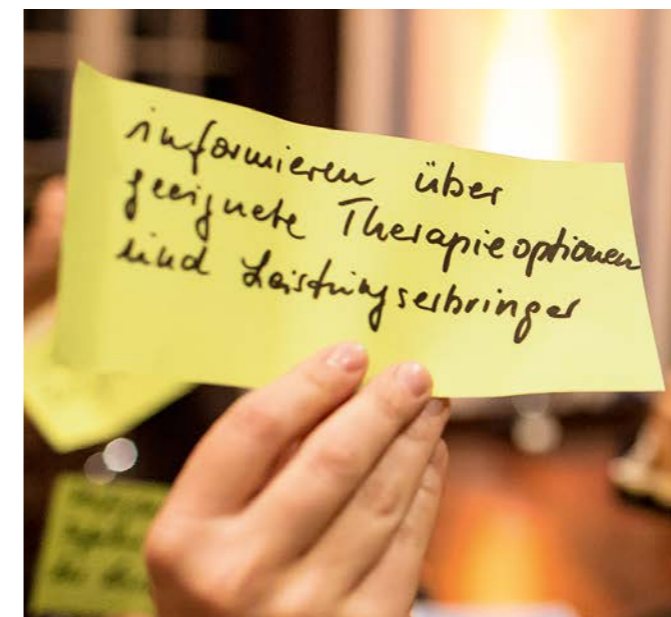 informieren über
geeignete Therapieoptionen
und Leistungserbringer